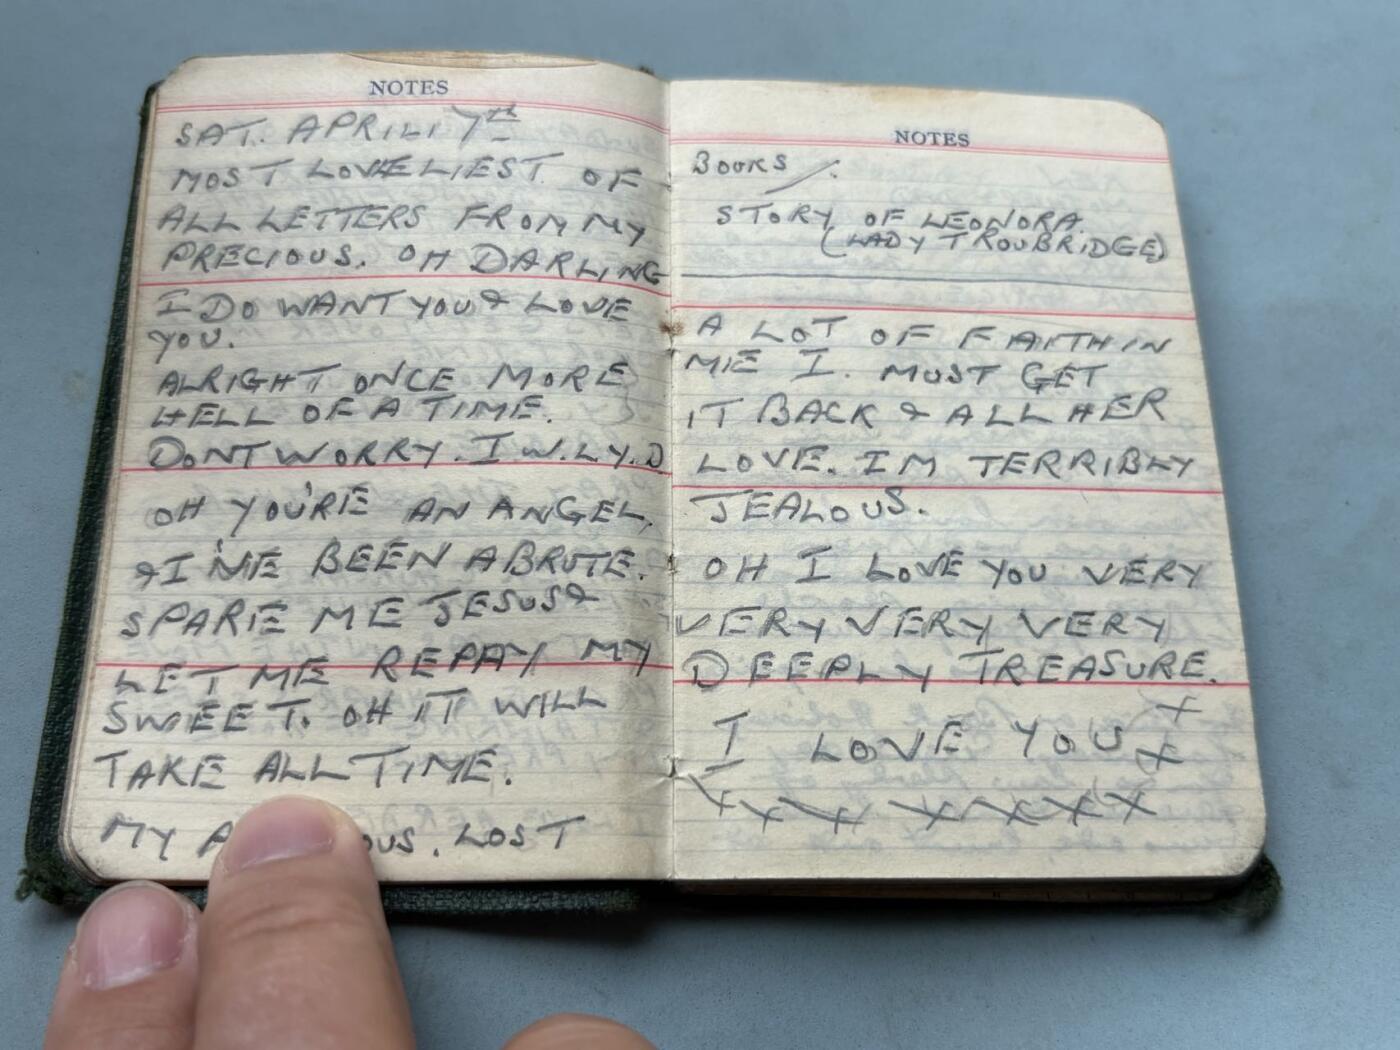 NOTES
SAT. APRIL 17th
MOST LOVELIEST OF
ALL LETTERS FROM MY
PRECIOUS. OH DARLING
I DO WANT YOU & LOVE
YOU.
ALRIGHT ONCE MORE
HELL OF A TIME.
DONT WORRY. I W.L.Y.D
OH YOU'RE AN ANGEL,
& I'VE BEEN A BRUTE.
SPARE ME JESUS &
LET ME REPAY MY
SWEET. OH IT WILL
TAKE ALL TIME.
MY LOST
NOTES
BOOKS
STORY OF LEONORA.
(LADY TROUBRIDGE)
A LOT OF FAITH IN
ME I. MUST GET
IT BACK & ALL HER
LOVE. IM TERRIBLY
JEALOUS.
OH I LOVE YOU VERY
VERY VERY VERY
DEEPLY TREASURE.
X
I LOVE YOU X
X X X X X X X